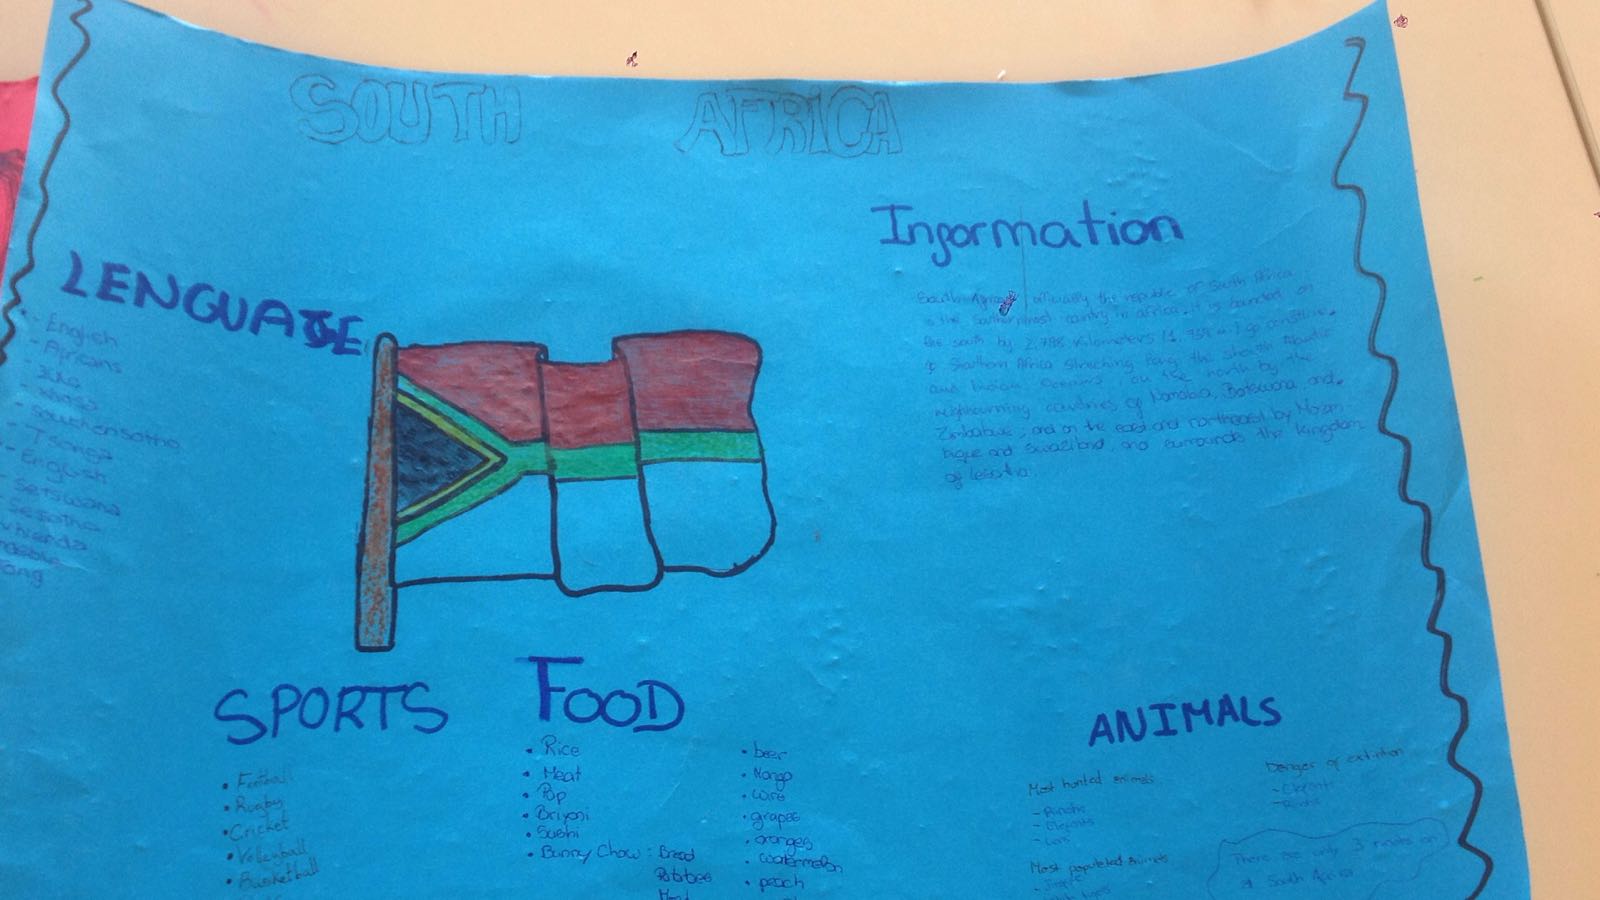 SOUTH AFRICA
LENGUAGE
- English
- Africans
- Zulu
- Xhosa
- Southensotho
- Tsonga
- English
Setswana
Sesotho
Information
South Africa officially the republic of South Africa
is the Southernmost country in africa. it is bounded on
the south by 2.798 Kilometers (1,
Southern Africa Streching long the shouth Atlantic
and Indian Oceans, on the north by the
neighbourning countries of Namabia, Botswana, and
Zimbabwe, and on the east and northeast by Mozam
bique and Swaziland, and surrounds the kingdom
of lesotho.
SPORTS
• Football
• Rugby
• Cricket
• Volleyball
• Basketball
FOOD
• Rice
• Meat
• Pap
• Briyoni
• Sushi
• Bunny Chow: Bread
Potatoes
Meat
• beer
• Mango
• wine
• grapes
• oranges
• watermelon
• peach
ANIMALS
Most hunted animals
- Rinohs
- Elefants
- Lions
Most populated animals
Danger of extintion
- Elefants
- Rinohs
There are only 3 rinohs on
South Africa